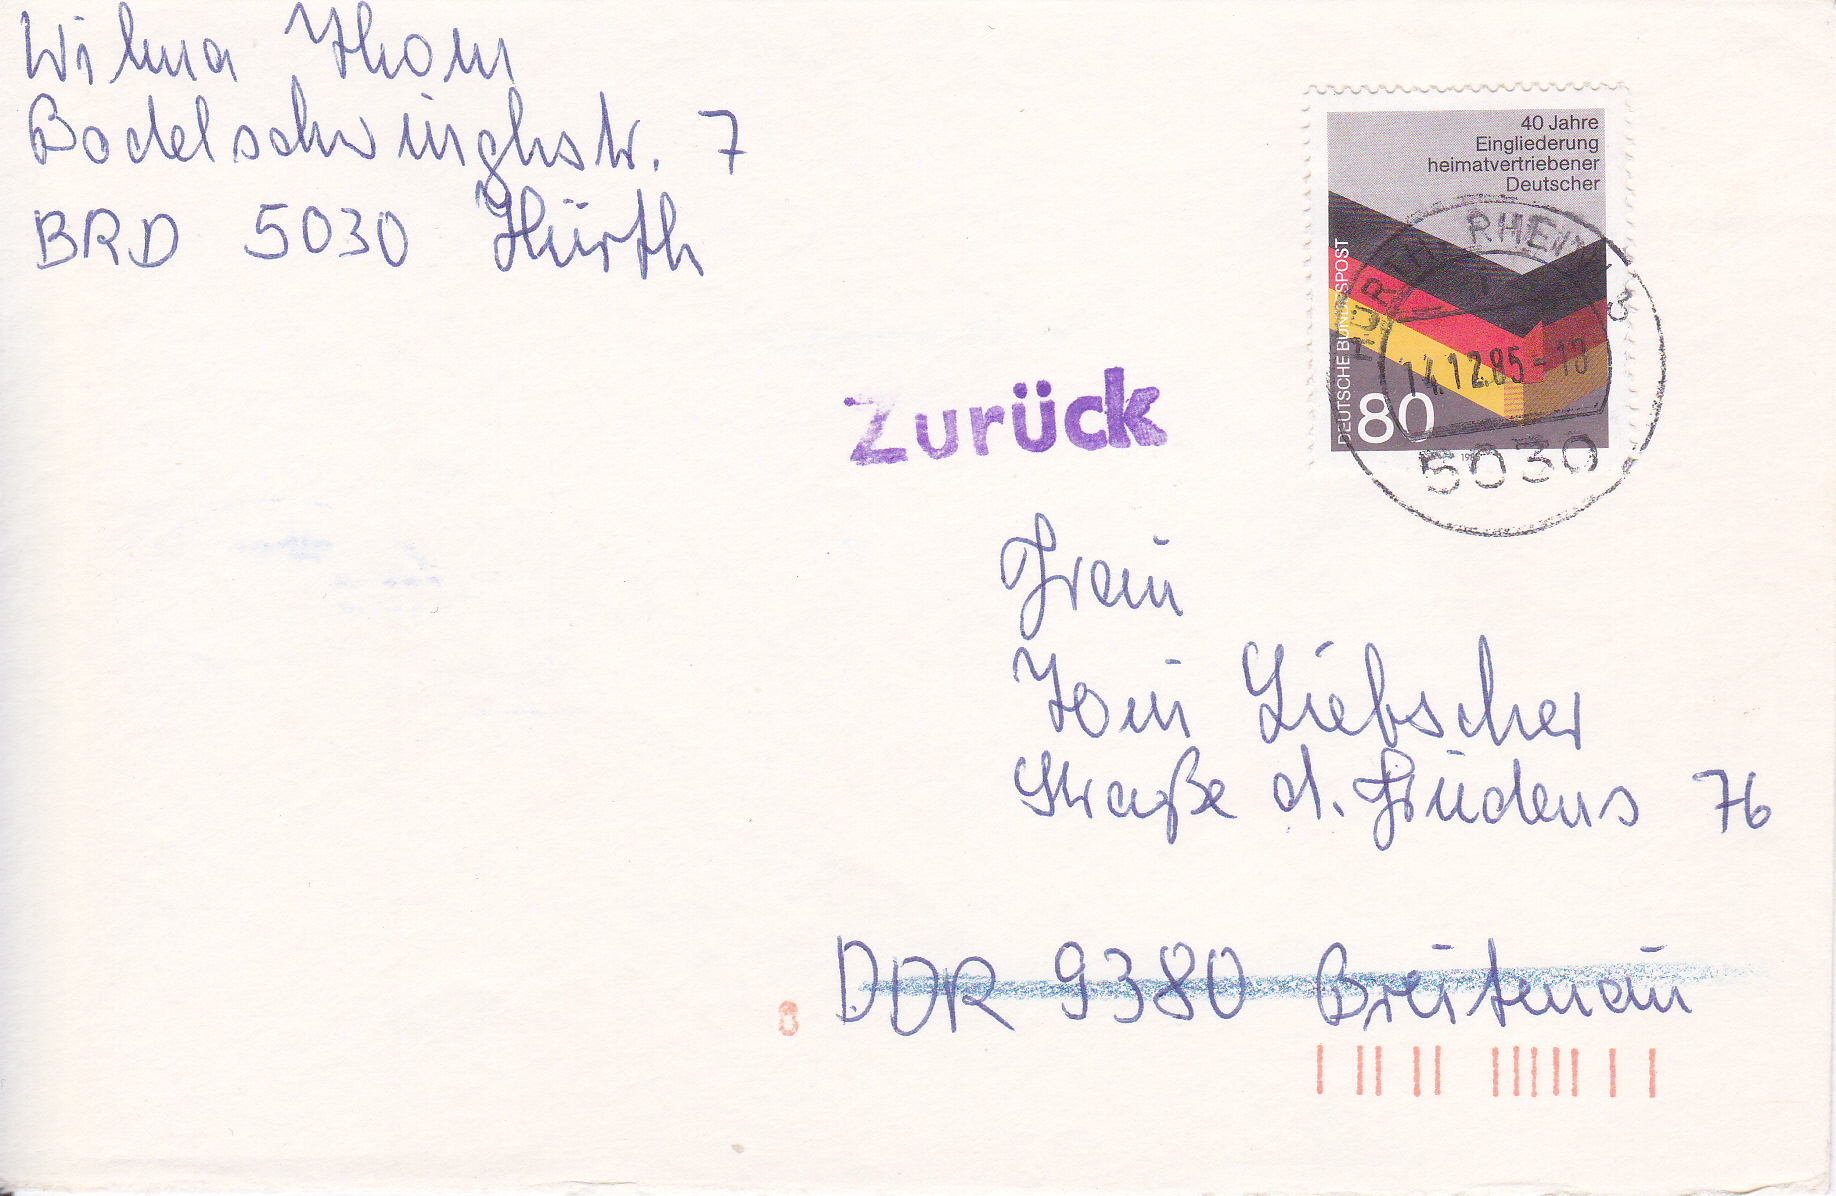 Wilma Thom
Bodelschwinghstr. 7
BRD 5030 Hürth
40 Jahre
Eingliederung
heimatvertriebener
Deutscher
DEUTSCHE BUNDESPOST
80
HÜRTH, RHEINL 3
14.12.85
5030
Zurück
Frau
Toni Liebscher
Straße d. Friedens 76
DDR 9380 Breitenau
8